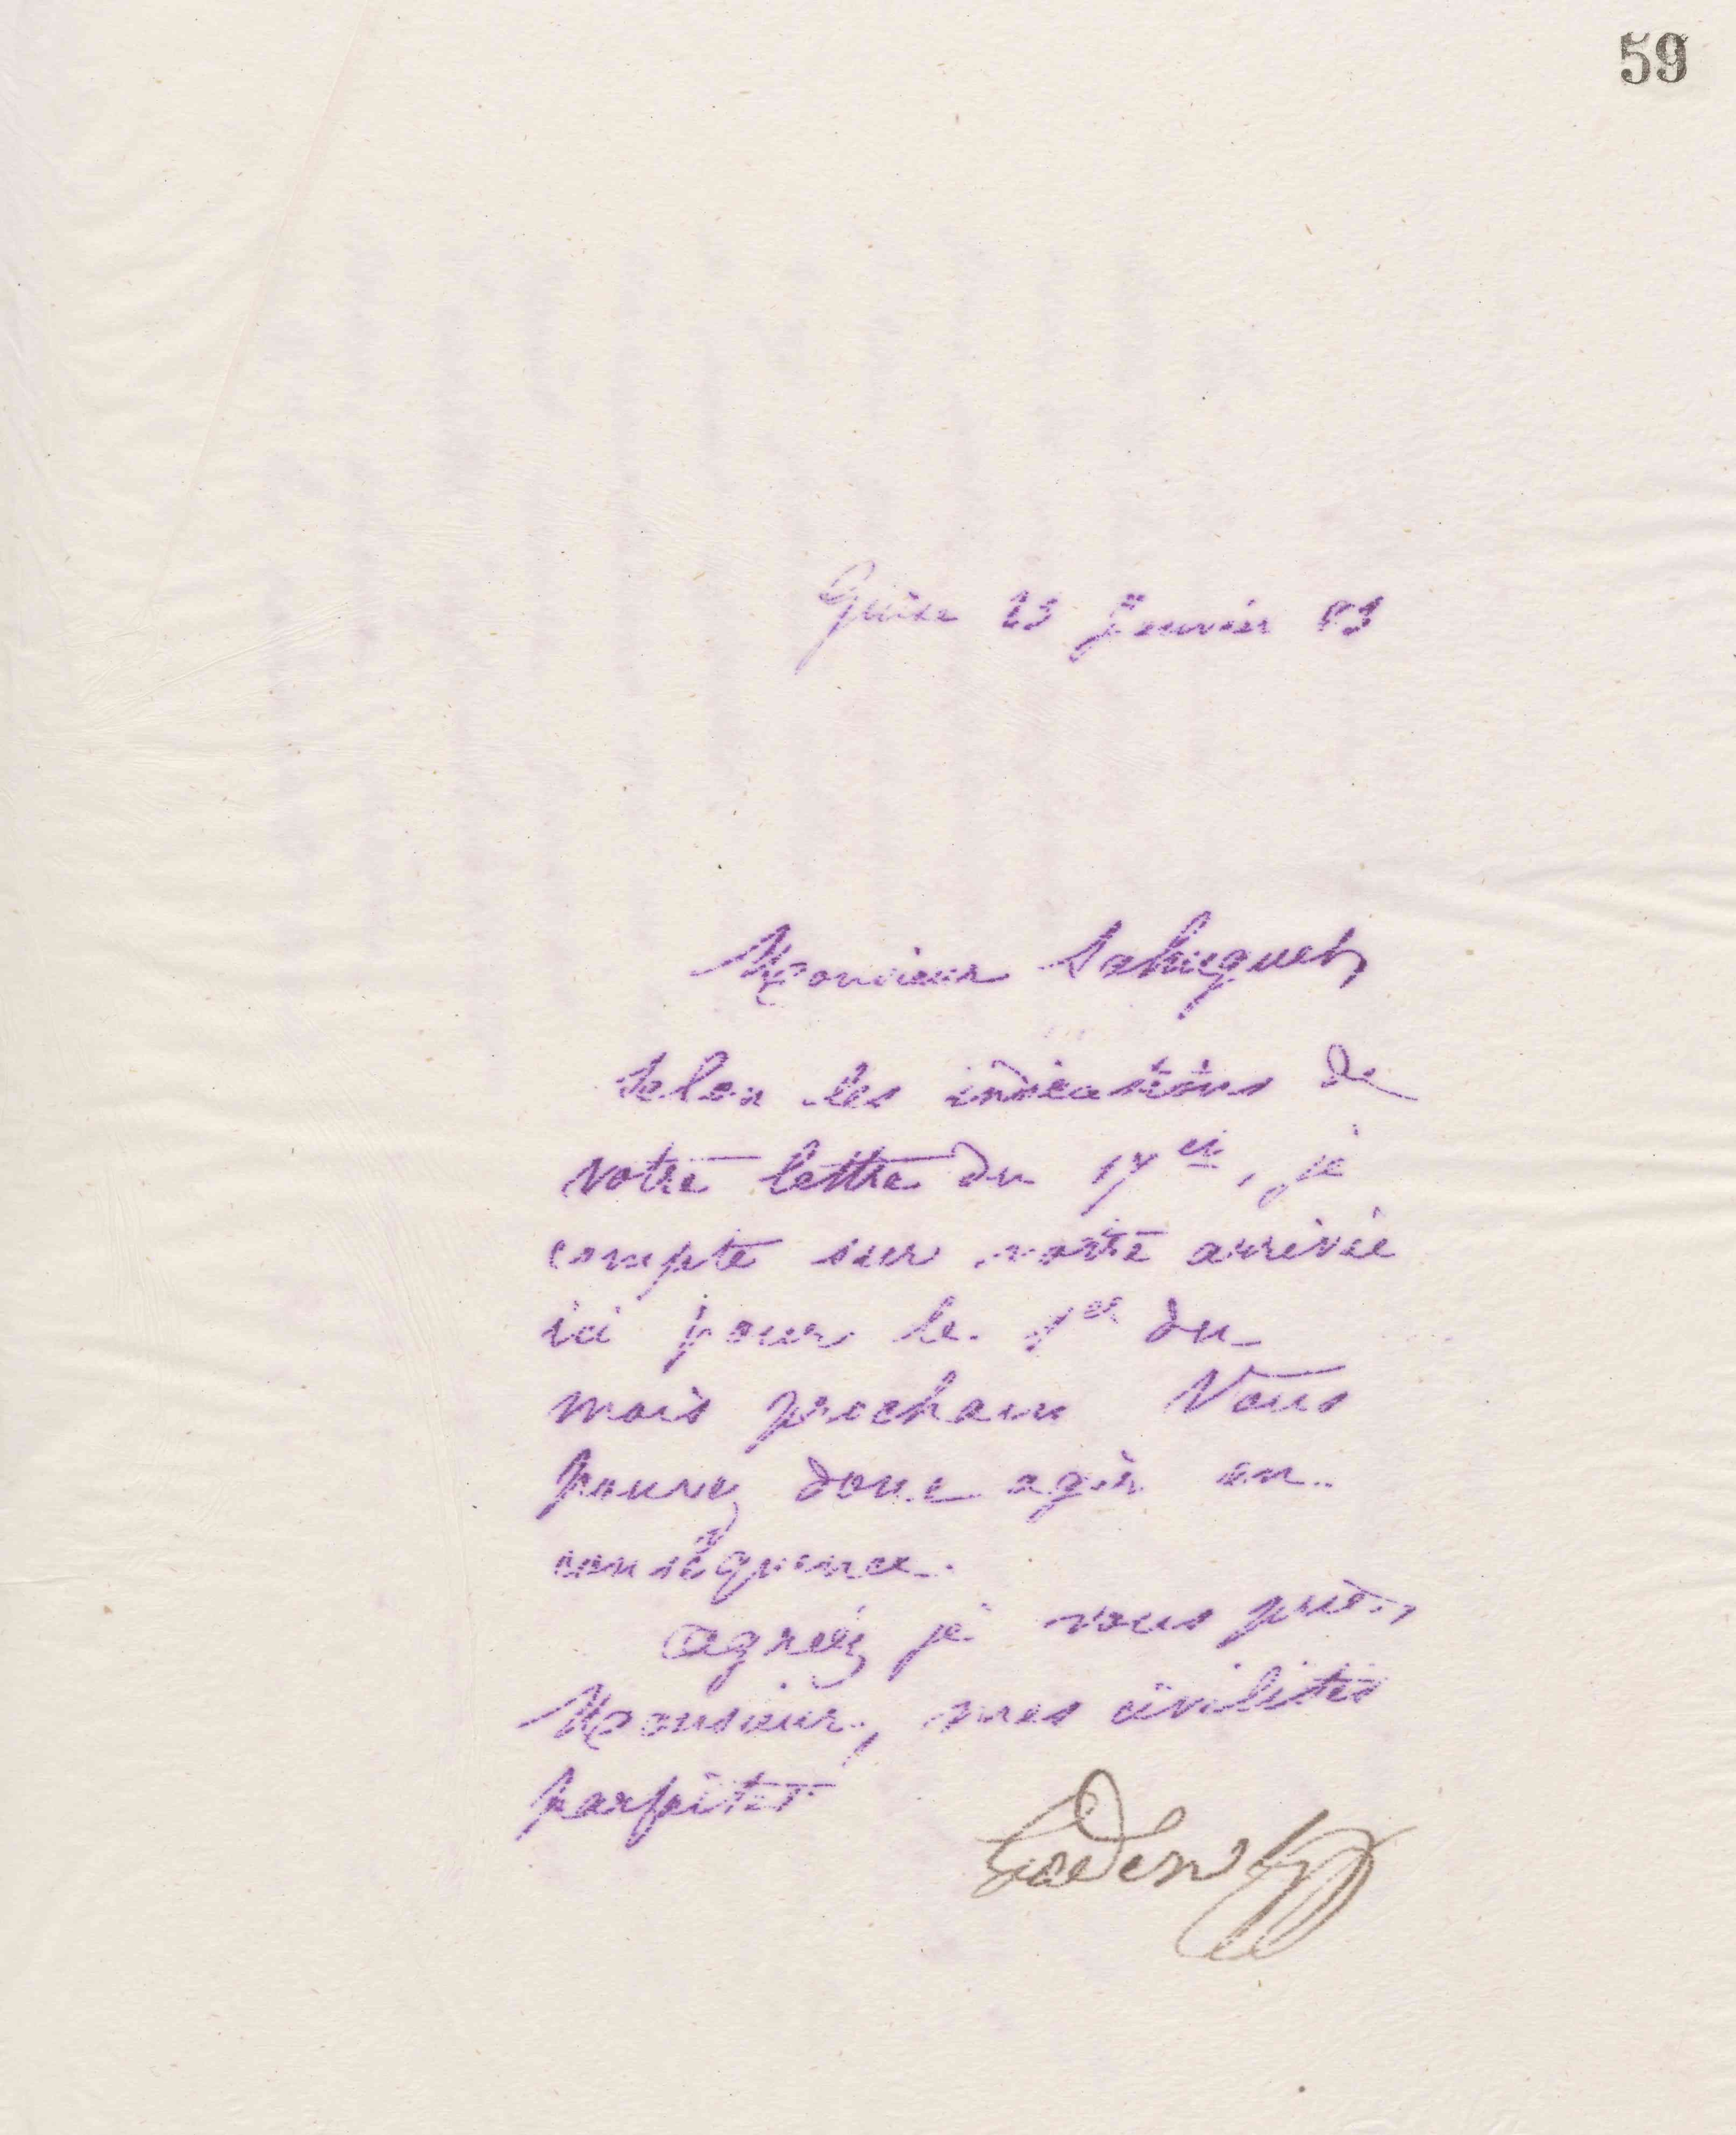 59
Guise 23 Janvier 83
Monsieur Sahuguet,
Selon les indications de
votre lettre du 17 ct, je
compte sur votre arrivée
ici pour le 1er du
mois prochain Vous
pouvez donc agir en
conséquence.
Agréez je vous prie,
Monsieur, mes civilités
parfaites
Godin